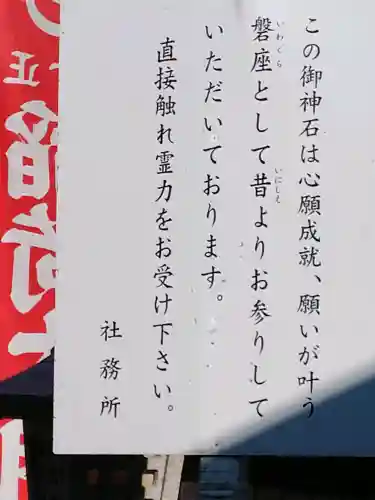 この御神石は心願成就、願いが叶う
磐座として昔よりお参りして
いただいております。
直接触れ霊力をお受け下さい。
社務所
いわくら
いにしえ
正一